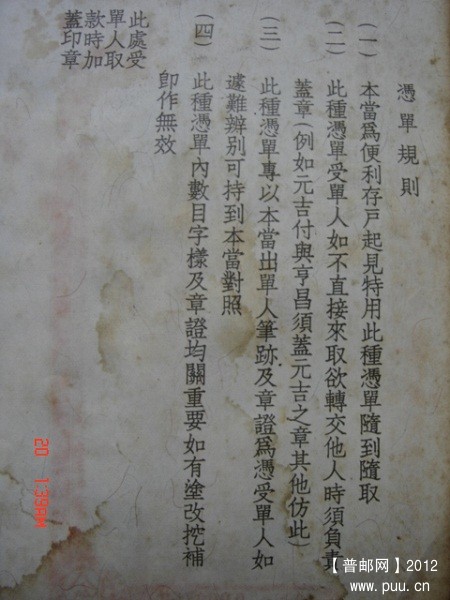 憑單規則
(一) 本當爲便利存戶起見特用此種憑單隨到隨取
(二) 此種憑單受單人如不直接來取欲轉交他人時須負責
蓋章(例如元吉付與亨昌須蓋元吉之章其他仿此)
(三) 此種憑單專以本當出單人筆跡及章證爲憑受單人如
遽難辨别可持到本當對照
(四) 此種憑單內數目字樣及章證均關重要如有塗改挖補
卽作無效
此處受
單人取
款時加
蓋印章
20 1:39AM
【普邮网】2012
www.puu.cn